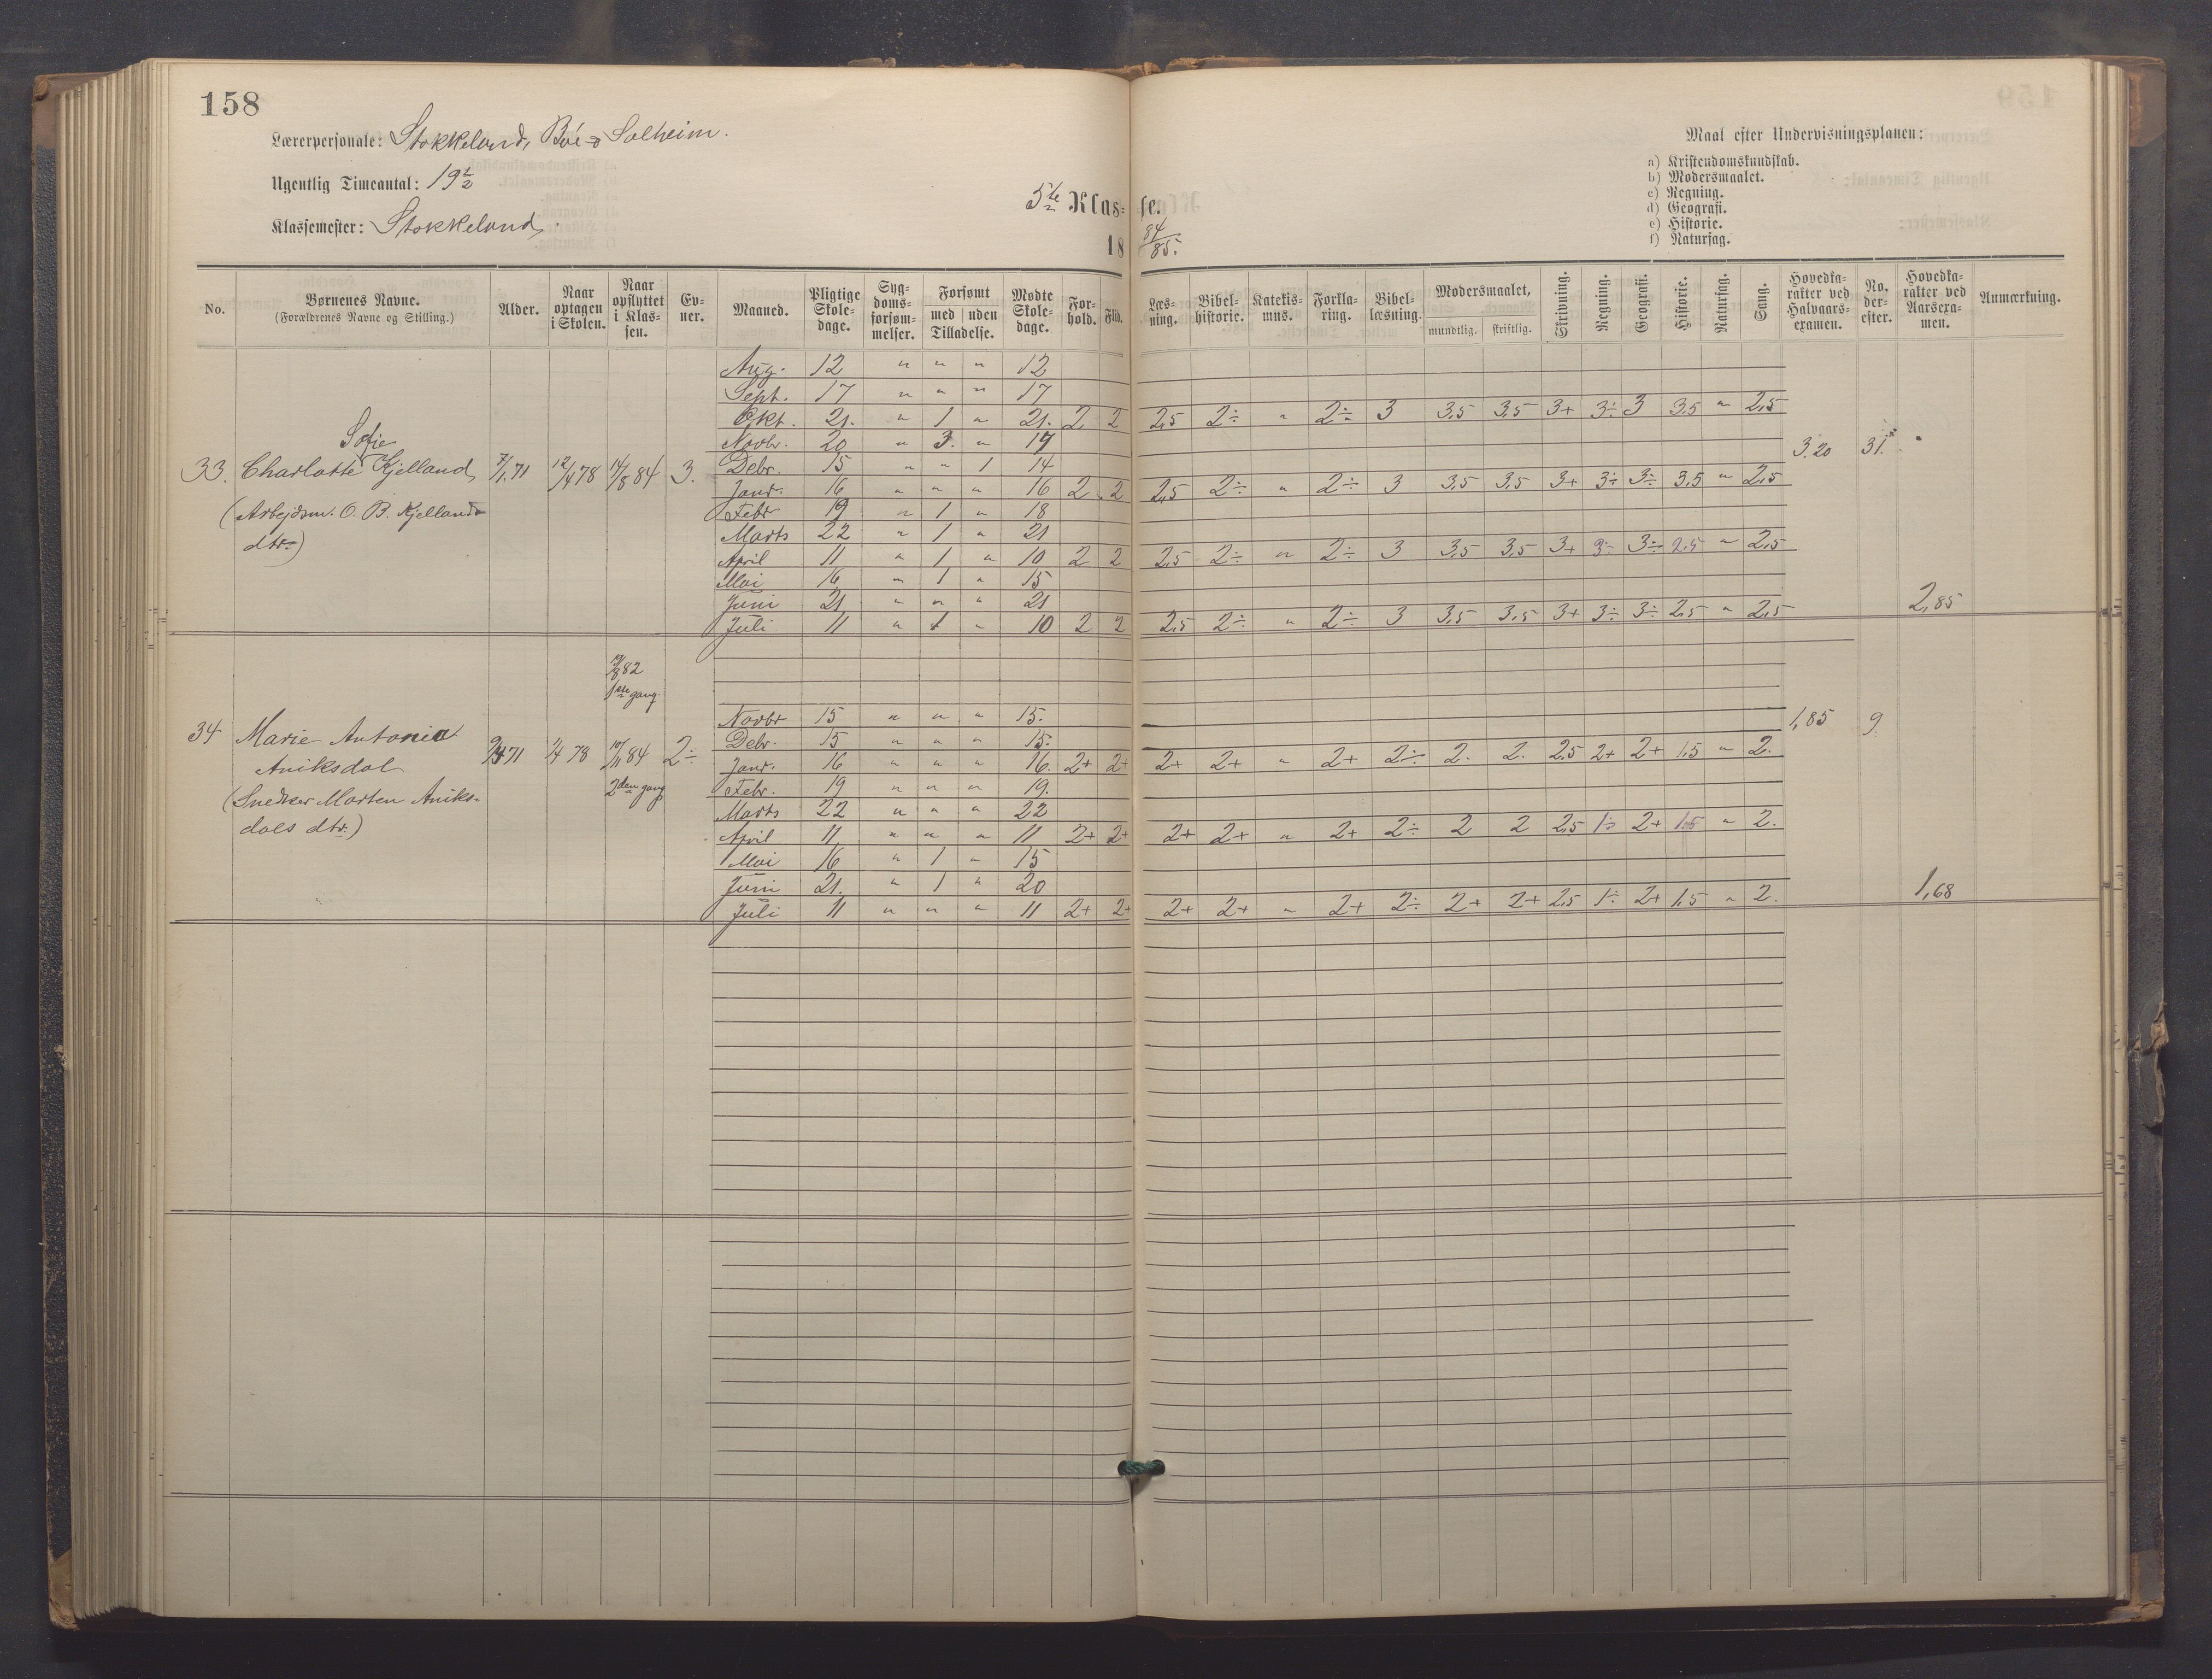 158
Lærerpersonale: Stokkeland, Bøe & Solheim.
Ugentlig Timeantal: 19½
Klassemester: Stokkeland.
5te Klasse.
18 84/85.
Maal efter Undervisningsplanen:
a) Kristendomskundskab.
b) Modersmaalet.
c) Regning.
d) Geografi.
e) Historie.
f) Naturfag.
No. | Børnenes Navne. (Forældrenes Navne og Stilling.) | Alder. | Naar optagen i Skolen. | Naar opflyttet i Klassen. | Evner. | Maaned. | Pligtige Skoledage. | Sygdomsforsømmelser. | Forsømt med Tilladelse. | uden Tilladelse. | Mødte Skoledage. | Forhold. | Flid. | Læsning. | Bibelhistorie. | Katekismus. | Forklaring. | Bibellæsning. | Modersmaalet, mundtlig. | skriftlig. | Skrivning. | Regning. | Geografi. | Historie. | Naturfag. | Sang. | Hovedkarakter ved Halvaarsexamen. | No. derefter. | Hovedkarakter ved Aarsexamen. | Anmærkning.
Aug. 12 " " " 12
Sept. 17 " " " 17
Okt. 21. " 1 " 21. 2 2 2,5 2÷ " 2÷ 3 3,5 3,5 3+ 3÷ 3 3,5 " 2,5
Sofie
Novbr. 20 " 3. " 17 3.20 31.
33. Charlotte Kjelland 7/1 71 12/4 78 14/8 84 3. Debr. 15 " " 1 14
Janr. 16 " " " 16 2 2 2,5 2÷ " 2÷ 3 3,5 3,5 3+ 3÷ 3÷ 3,5 " 2,5
(Arbejdsm. O. B. Kjellands Febr 19 " 1 " 18
Marts 22 " 1 " 21
dtr.)
April 11 " 1 " 10 2 2 2,5 2÷ " 2÷ 3 3,5 3,5 3+ 3÷ 3÷ 2,5 " 2,5
Mai 16 " 1 " 15
Juni 21 " " " 21 2,85
Juli 11 " 1 " 10 2 2 2,5 2÷ " 2÷ 3 3,5 3,5 3+ 3÷ 3÷ 2,5 " 2,5
82
1ste gang.
Novbr 15 " " " 15. 1,85 9
34 Marie Antonia
Debr. 15 " " " 15.
Aniksdal 71 78 10/11 84 2÷
Janr. 16 " " " 16. 2+ 2+ 2+ 2+ " 2+ 2÷ 2. 2. 2,5 2+ 2+ 1,5 " 2.
2den gang
Febr. 19 " " " 19.
(Snedker Morten Aniks-
Marts 22 " " " 22
dals dtr.)
April 11 " " " 11 2+ 2+ 2+ 2+ " 2+ 2÷ 2 2 2,5 1÷ 2+ 1,5 " 2.
Mai 16 " 1 " 15
Juni 21. " 1 " 20 1,68
Juli 11 " " " 11 2+ 2+ 2+ 2+ " 2+ 2÷ 2+ 2+ 2,5 1÷ 2+ 1,5 " 2.